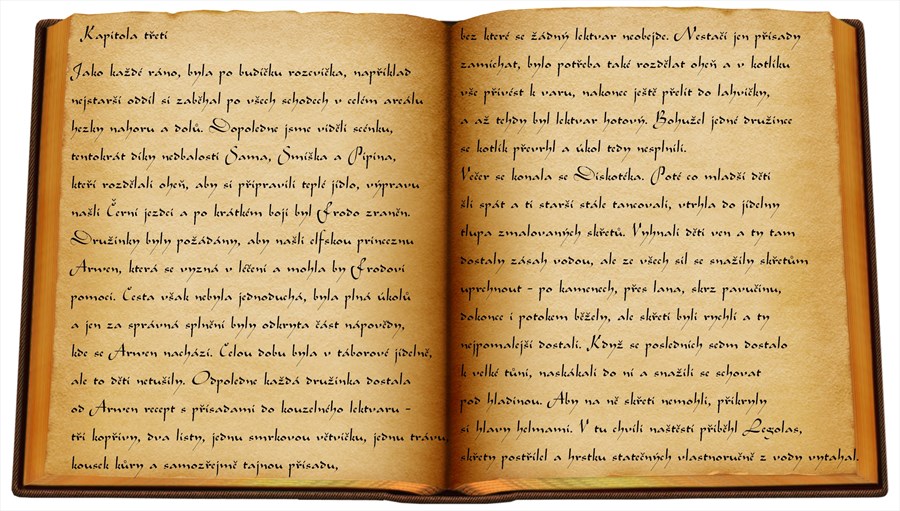 Kapitola třetí
Jako každé ráno, byla po budíčku rozcvička, například
nejstarší oddíl si zaběhal po všech schodech v celém areálu
hezky nahoru a dolů. Dopoledne jsme viděli scénku,
tentokrát díky nedbalosti Sama, Smíška a Pipina,
kteří rozdělali oheň, aby si připravili teplé jídlo, výpravu
našli Černí jezdci a po krátkém boji byl Frodo zraněn.
Družinky byly požádány, aby našli elfskou princeznu
Arwen, která se vyzná v léčení a mohla by Frodovi
pomoci. Cesta však nebyla jednoduchá, byla plná úkolů
a jen za správná splnění byly odkryta část nápovědy,
kde se Arwen nachází. Celou dobu byla v táborové jídelně,
ale to děti netušily. Odpoledne každá družinka dostala
od Arwen recept s přísadami do kouzelného lektvaru -
tři kopřivy, dva listy, jednu smrkovou větvičku, jednu trávu,
kousek kůry a samozřejmě tajnou přísadu,
bez které se žádný lektvar neobejde. Nestačí jen přísady
zamíchat, bylo potřeba také rozdělat oheň a v kotlíku
vše přivést k varu, nakonec ještě přelít do lahvičky,
a až tehdy byl lektvar hotový. Bohužel jedné družince
se kotlík převrhl a úkol tedy nesplnili.
Večer se konala se Diskotéka. Poté co mladší děti
šli spát a ti starší stále tancovali, vtrhla do jídelny
tlupa zmalovaných skřetů. Vyhnali děti ven a ty tam
dostaly zásah vodou, ale ze všech sil se snažily skřetům
uprchnout - po kamenech, přes lana, skrz pavučinu,
dokonce i potokem běžely, ale skřeti byli rychlí a ty
nejpomalejší dostali. Když se posledních sedm dostalo
k velké tůni, naskákali do ní a snažili se schovat
pod hladinou. Aby na ně skřeti nemohli, přikryly
si hlavy helmami. V tu chvíli naštěstí přiběhl Legolas,
skřety postřílel a hrstku statečných vlastnoručně z vody vytahal.